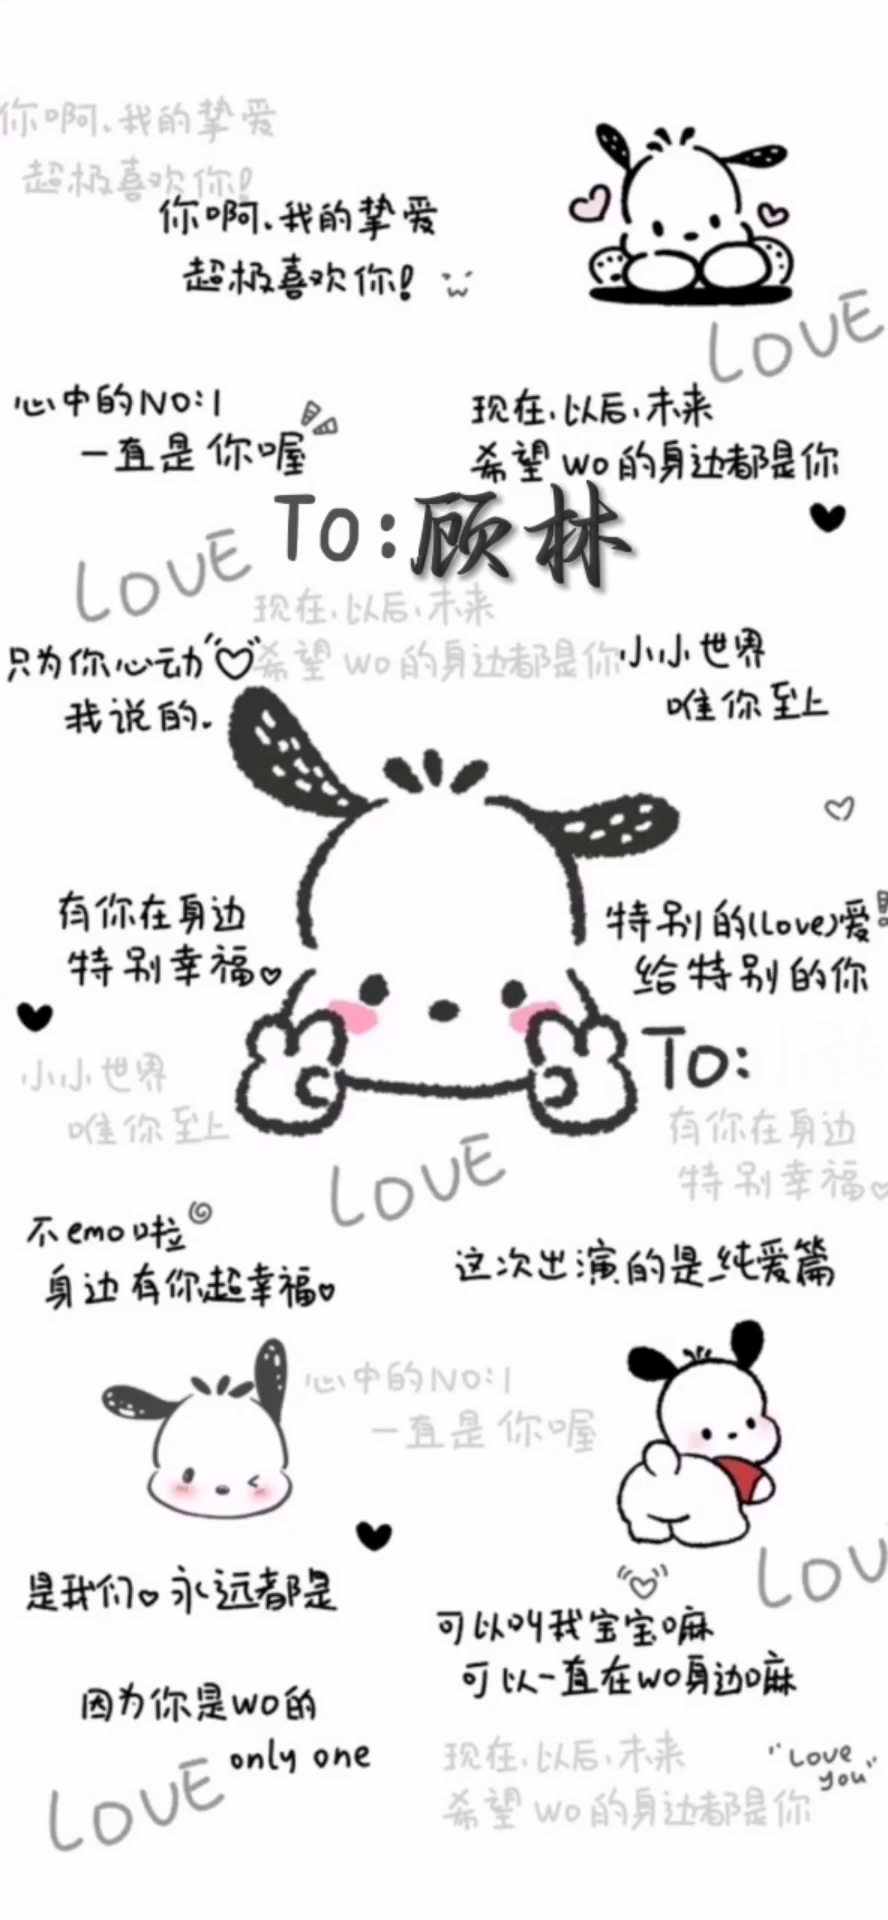 你啊、我的挚爱
超极喜欢你!
你啊、我的挚爱
超极喜欢你!
LOVE
心中的NO:1
一直是你喔
现在、以后、未来
希望wo的身边都是你
To:顾林
LOVE
现在、以后、未来
希望wo的身边都是你
只为你心动
我说的.
小小世界
唯你至上
有你在身边
特别幸福
特别的(love)爱
给特别的你
To:
小小世界
唯你至上
有你在身边
特别幸福
LOVE
不emo啦
身边有你超幸福
这次出演的是纯爱篇
心中的NO:1
一直是你喔
LOV
是我们 永远都是
可以叫我宝宝嘛
可以一直在wo身边嘛
因为你是wo的
only one
LOVE
现在、以后、未来
希望wo的身边都是你
"Love
you"